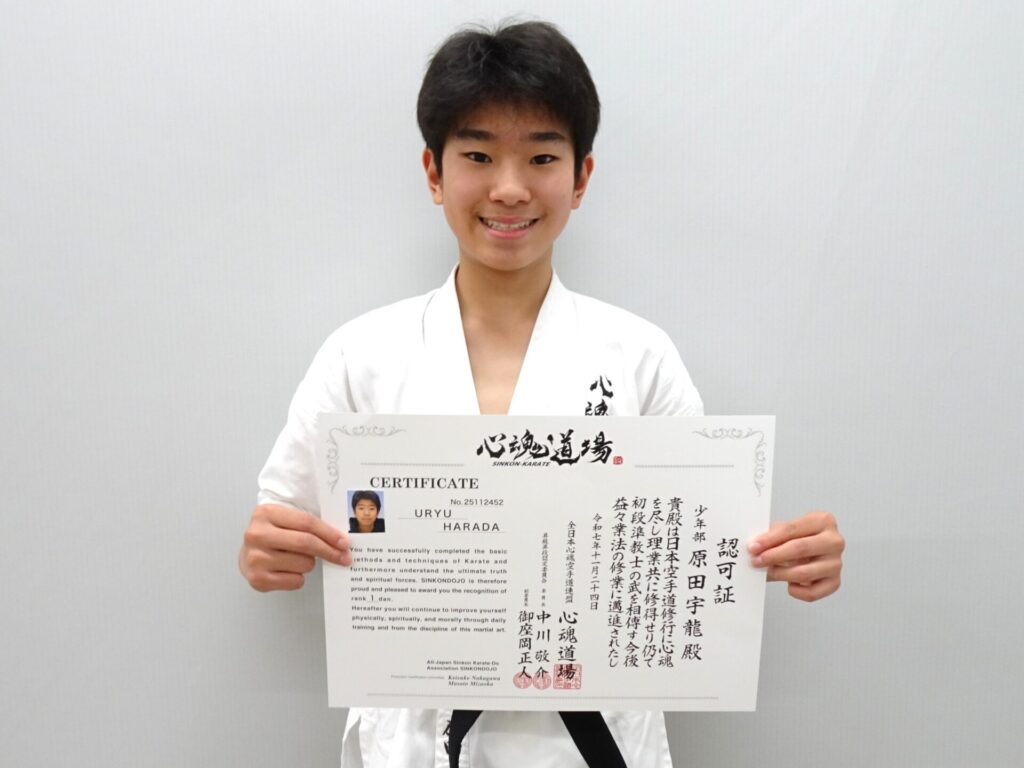 心魂
心魂道場
SINKON-KARATE
CERTIFICATE
No.25112452
URYU
HARADA
You have successfully completed the basic
methods and techniques of Karate and
furthermore understand the ultimate truth
and spiritual forces. SINKONDOJO is therefore
proud and pleased to award you the recognition of
rank 1 dan.
Hereafter you will continue to improve yourself
physically, spiritually, and morally through daily
training and from the discipline of this martial art.
All-Japan Sinkon Karate-Do
Association SINKONDOJO
Keisuke Nakagawa
Masato Mizaoka
認可証
少年部 原田宇龍殿
貴殿は日本空手道修行に心魂
を尽し理業共に修得せり仍て
初段準教士の武を相傳す今後
益々業法の修業に邁進されたし
令和七年十一月二十四日
全日本心魂空手道連盟
心魂道場
中川敬介
御座岡正人